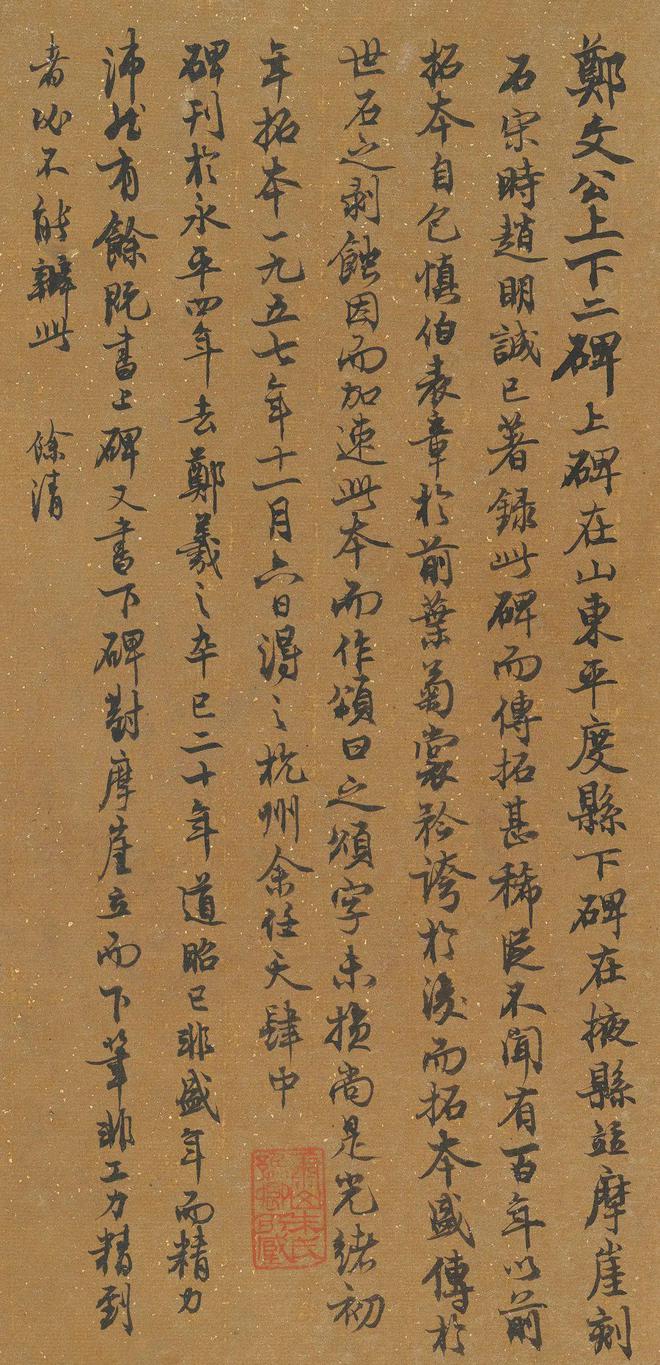 鄭文公上下二碑上碑在山東平度縣下碑在掖縣竝摩崖刻
石宋時趙明誠已著録此碑而傳拓甚稀從不聞有百年以前
拓本自包慎伯表章於前葉菊裳矜誇於後而拓本盛傳於
世石之剥蝕因而加速此本而作頌曰之頌字未損尚是光緒初
年拓本一九五七年十一月六日得之杭州余任天肆中
碑刊於永平四年去鄭羲之卒已二十年道昭已非盛年而精力
沛然有餘既書上碑又書下碑對摩崖立而下筆非工力精到
者必不能辦此 餘清
蕭山朱氏